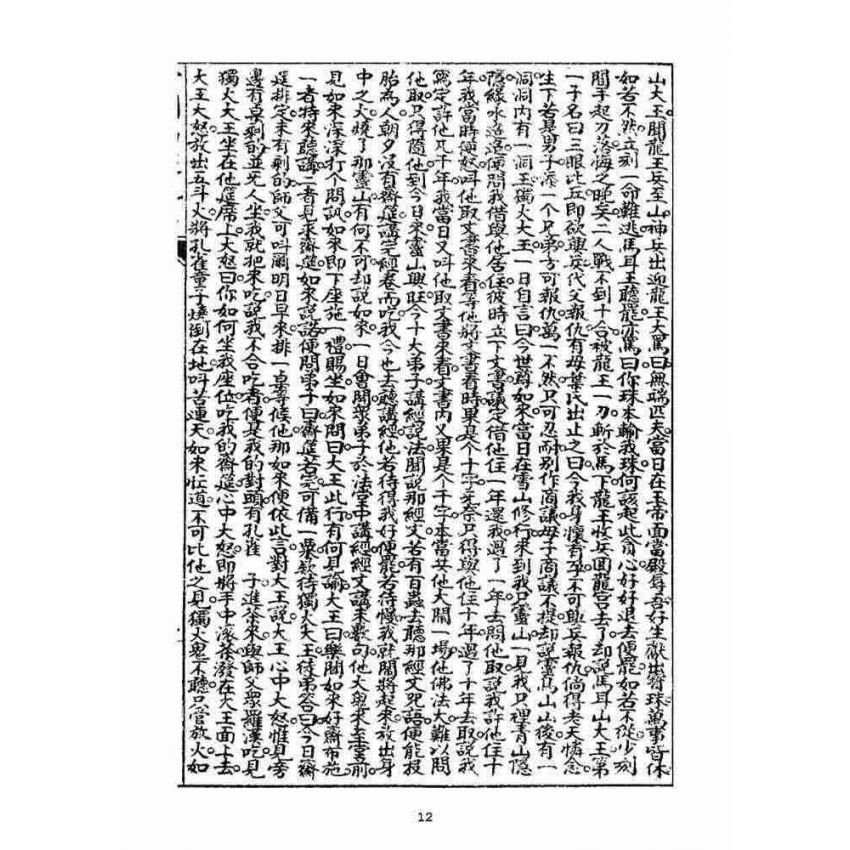 山大王聞龍王兵至山神兵出迎龍王大罵曰無端匹夫當日在玉帝面當殿辱吾好生獻出寶珠萬事皆休
如若不然立刻一命難逃馬耳王聽罷亦罵曰你珠本輸我珠何該起此貪心好好退去便罷如若不從少刻
間手起刀落悔之晚矣二人戰不到十合被龍王一刀斬於馬下龍王收兵囬龍宮去了却說馬耳山大王第
一子名曰三眼比丘即欲興兵代父報仇有母葉氏出止之曰今我身懷有孕不可興兵報仇倘得老天憐念
生下若是男子添一個兄弟方可報仇萬一不然只可忍耐別作商議母子商議不提却說靈鷲山山後有一
洞洞內有一洞王獨火大王一日自言曰今世尊如來當日在雪山修行來到我只靈山一見我只裡青山隱
隱綠水迢迢便問我借與他居住彼時立下文書議定借他住一年還我過了一年去問他取說我許他住十
年我當時便怒呌他取文書來看等他將文書看時果是个十字无奈只得與他住十年過了十年去取說我
寫定許他凡千年我當日又呌他取文書來看文書內又果是个千字本當共他大鬧一場他佛法大難以問
他取只得隨他到今日來靈山興旺今十大弟子講經說法聞說那經文若有百蟲去聽那經文死語便能投
胎為人朝夕沒有齋筵講完經卷而吃我今也去聽講經他若待得我好便罷若待慢我就鬧將起來放出身
中之火燒了那靈山有何不可却說如來一日會閗眾弟子於法堂中講經經文講未數句他大與來至堂前
見如來深深打个問訊如來即下座施一禮賜坐如來問曰大王此行有何見諭大王曰樂聞如來好齋布施
一者特來聽講二者見求齋筵如來說諾便問弟子曰齋筵若完可備一棗欵待獨火大王徒弟荅曰今日齋
筵排定未有剩的師父可呌爾明日早來排一棗等候他那如來便依此言對大王說大王心中大怒惟見旁
邊有桌剩的並无人坐我就把來吃說我不合吃者便是我的對頭有孔雀 子進茶來與師父眾羅漢吃見
獨火大王坐在他筵席上大怒曰你如何坐我座位吃我的齋筵心中大怒即將手中滾茶潑在大王面上去
大王大怒放出五斗火將孔雀童子燒倒在地呌苦連天如來忙道不可比他之見獨火鬼不聽只管放火如
12